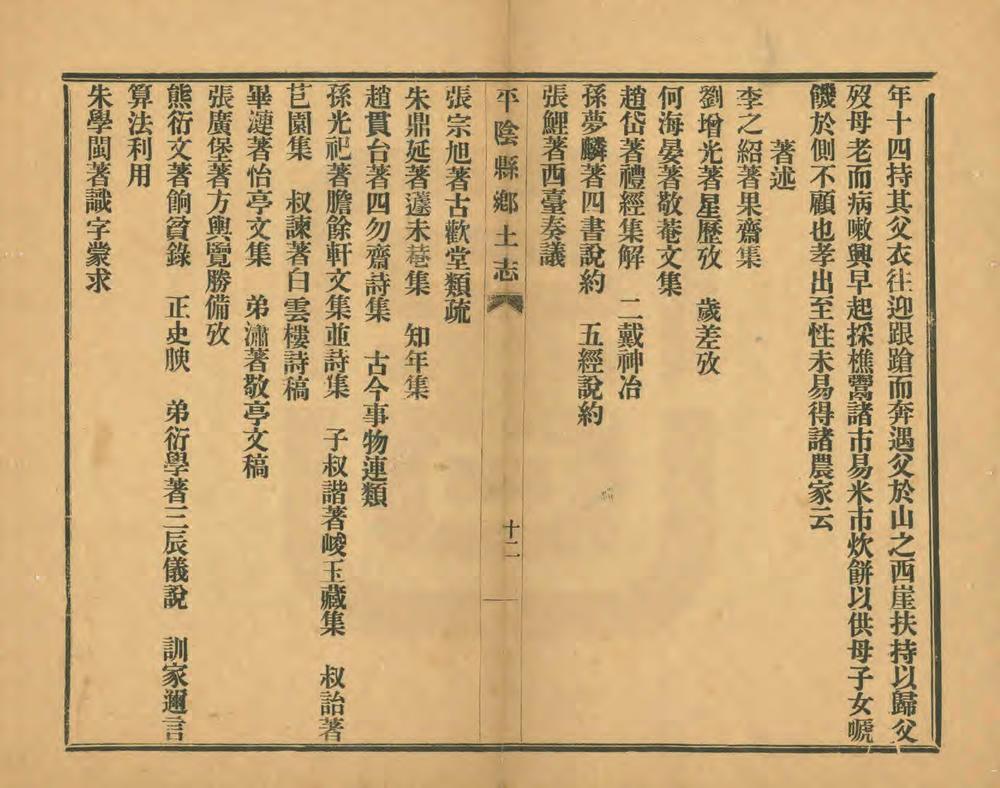 年十四持其父衣往迎跟蹌而奔遇父於山之西崖扶持以歸父
歿母老而病嗽興早起採樵鬻諸市易米市炊餅以供母子女嗁
饑於側不顧也孝出至性未易得諸農家云
著述
李之紹著果齋集
劉增光著星歷攷　歲差攷
何海晏著敬菴文集
趙岱著禮經集解　二戴神冶
孫夢麟著四書說約　五經說約
張鯉著西臺奏議
平陰縣鄉土志
十二
張宗旭著古歡堂類疏
朱鼎延著薳末巷集　知年集
趙貫台著四勿齋詩集　古今事物連類
孫光祀著膽餘軒文集並詩集　子叔諧著峻玉藏集　叔詒著
芑園集　叔諫著白雲樓詩稿
畢漣著怡亭文集　弟潚著敬亭文稿
張廣堡著方輿覽勝備攷
熊衍文著餉貧錄　正史腴　弟衍學著三辰儀說　訓家邇言
算法利用
朱學閩著識字蒙求